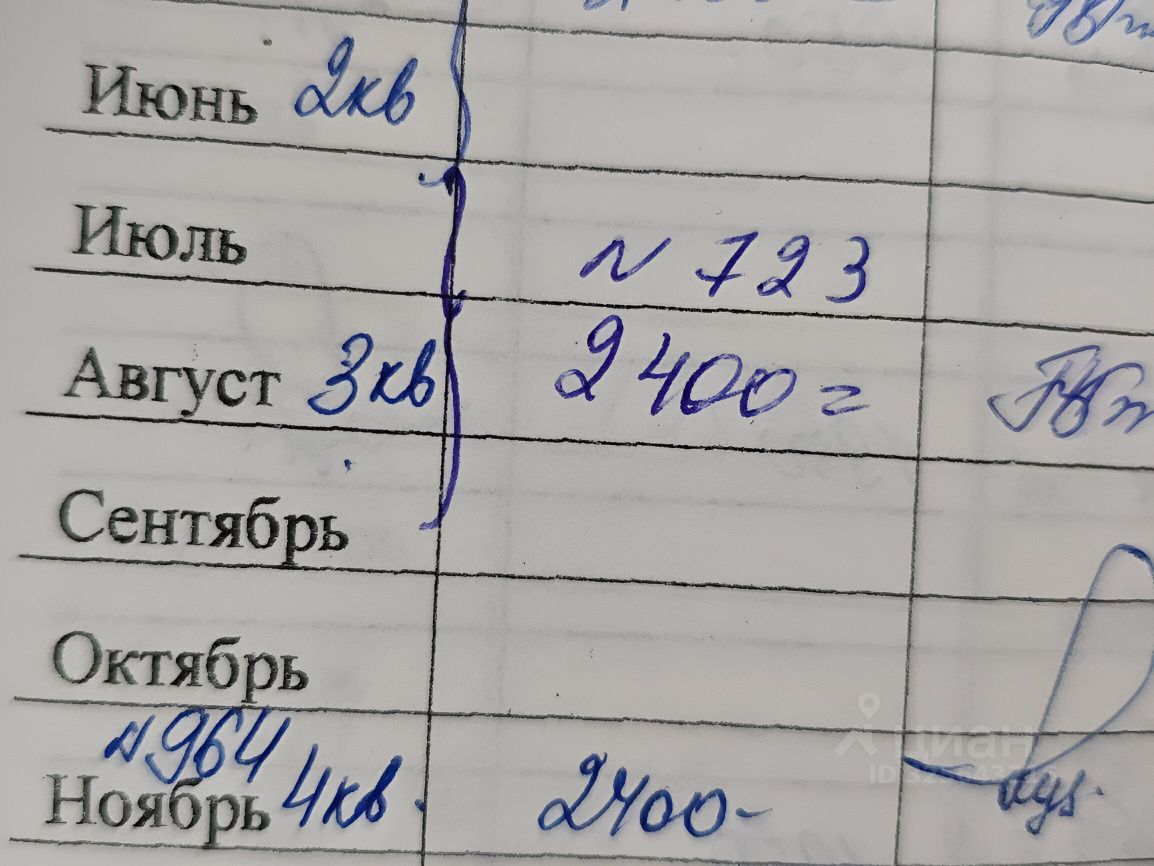 Июнь 2кв
Июль
N 723
Август 3кв 2400=
Сентябрь
Октябрь
циан
N964
Ноябрь 4кв. 2400-